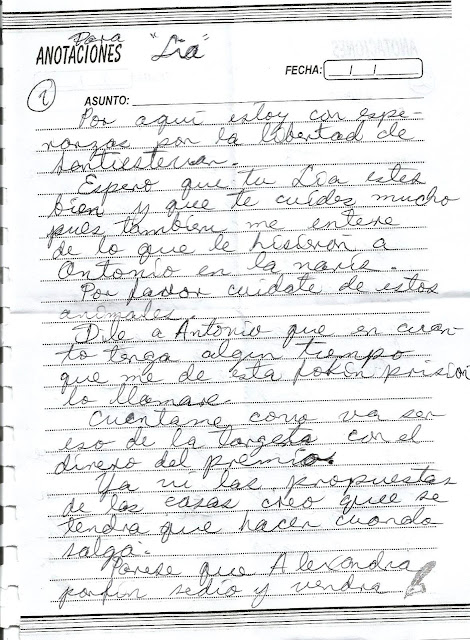 Para
ANOTACIONES "Lia"
FECHA: / /
1
ASUNTO:
Por aquí estoy con espe-
ranzas por la libertad de
Santiestevan.
Espero que tu Lia estes
bien y que te cuides mucho
pues tambien me entere
de lo que le hisieron a
Antonio en la naris.
Por favor cuidate de estos
animales.
Dile a Antonio que en cuan-
to tenga algun tiempo
que me de esta fokin prision
lo llamare
Cuentame como va ser
eso de la targeta con el
dinero del premio.
Ya ni las propuestas
de las casas creo quee se
tendra que hacer cuando
salga.
Parese que Alexandra
porfin sedio y vendra